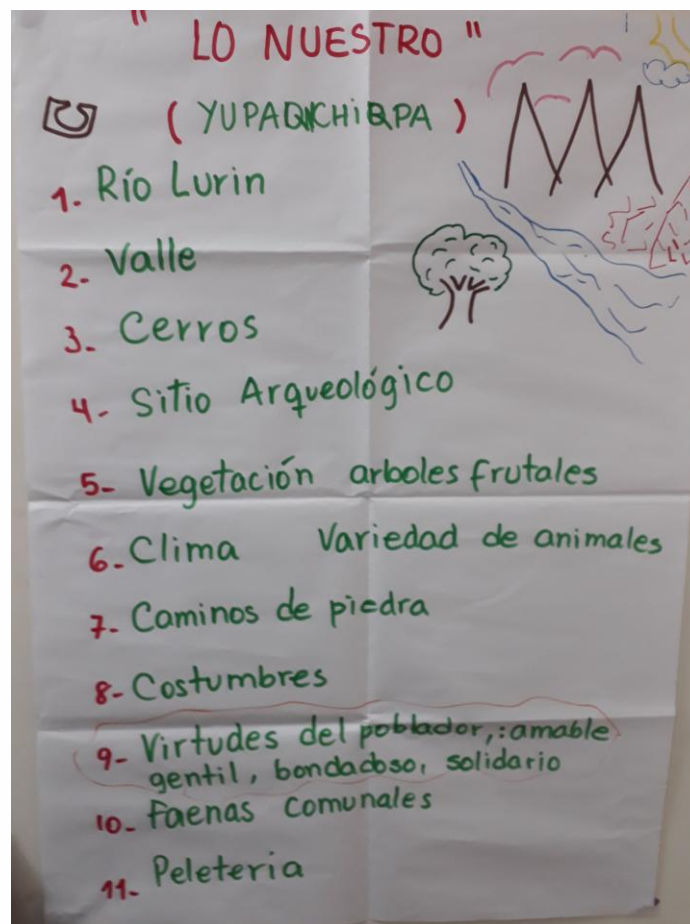 " LO NUESTRO "
( YUPAQNCHiQPA )
1. Río Lurin
2- Valle
3- Cerros
4- Sitio Arqueológico
5- Vegetación arboles frutales
6- Clima Variedad de animales
7- Caminos de piedra
8- Costumbres
9- Virtudes del poblador,: amable
gentil, bondadoso, solidario
10- Faenas comunales
11- Peleteria